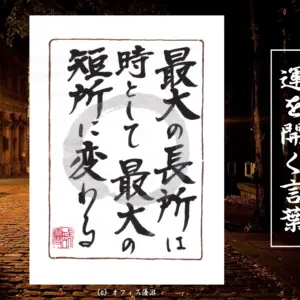 最大の長所は
時として最大の
短所に変わる
運を開く言葉
(c) オフィス優滋